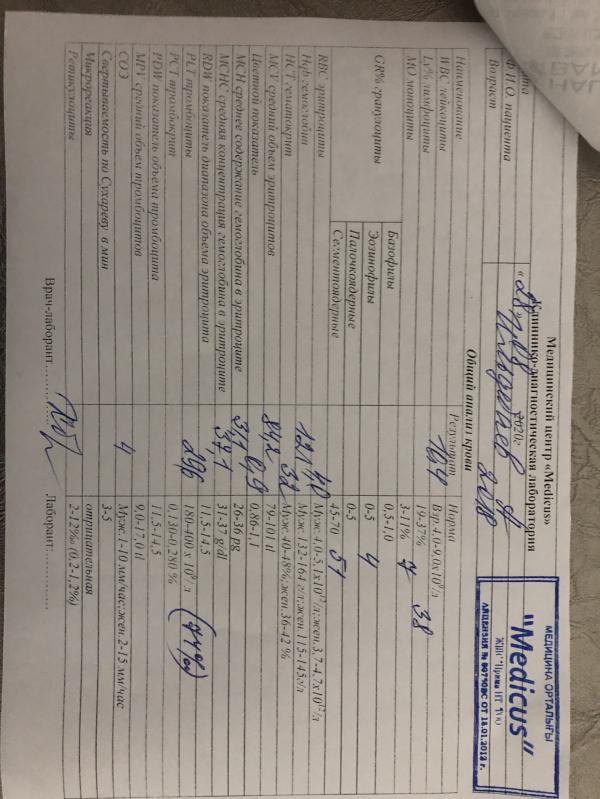 МЕДИЦИНА ОРТАЛЫҒЫ
"Medicus"
ЛИЦЕНЗИЯ № ОТ 18.01.2012 г.
Медицинский центр «Medicus»
Клинико-диагностическая лаборатория
«28» 08 2020г.
Ф.И.О. пациента
Возраст 2018
Общий анализ крови
Наименование Результат Норма
WBC лейкоциты 10,4 Взр.4,0-9,0х10⁹/л
Ly% лимфоциты 19-37% 38
МО моноциты 3-11% 7
GR% гранулоциты Базофилы 0,5-1,0
Эозинофилы 0-5 4
Палочкоядерные 0-5
Сегментоядерные 45-70 51
RBC эритроциты 4,0 Муж.4,0-5,1х10¹²/л;жен.3,7-4,7х10¹²/л
Hgb гемоглобин 121 Муж:132-164 г/л;жен.115-145г/л
НСТ гематокрит 33 Муж:40-48%;жен.36-42 %
MCV средний объем эритроцитов 84,2 79-101 fl
Цветной показатель 0,9 0,86-1,1
МСН среднее содержание гемоглобина в эритроците 31,1 26-36 pg
МСНС средняя концентрация гемоглобина в эритроците 37,1 31-37 g/dl
RDW показатель диапазона объема эритроцита 11,5-14,5
PLT тромбоциты 296 180-400 х 10⁹/л
РСТ тромбокрит 0,130-0,280 %
PDW показатель объема тромбоцита 11,5-14,5
MPV средний объем тромбоцитов 9,0-17,0 fl
СОЭ 4 Муж:1-10 мм/час;жен.2-15 мм/час
Свертываемость по Сухареву в мин 3-5
Микрореакция отрицательная
Ретикулоциты 2-12‰ (0,2-1,2%)
Врач-лаборант Лаборант